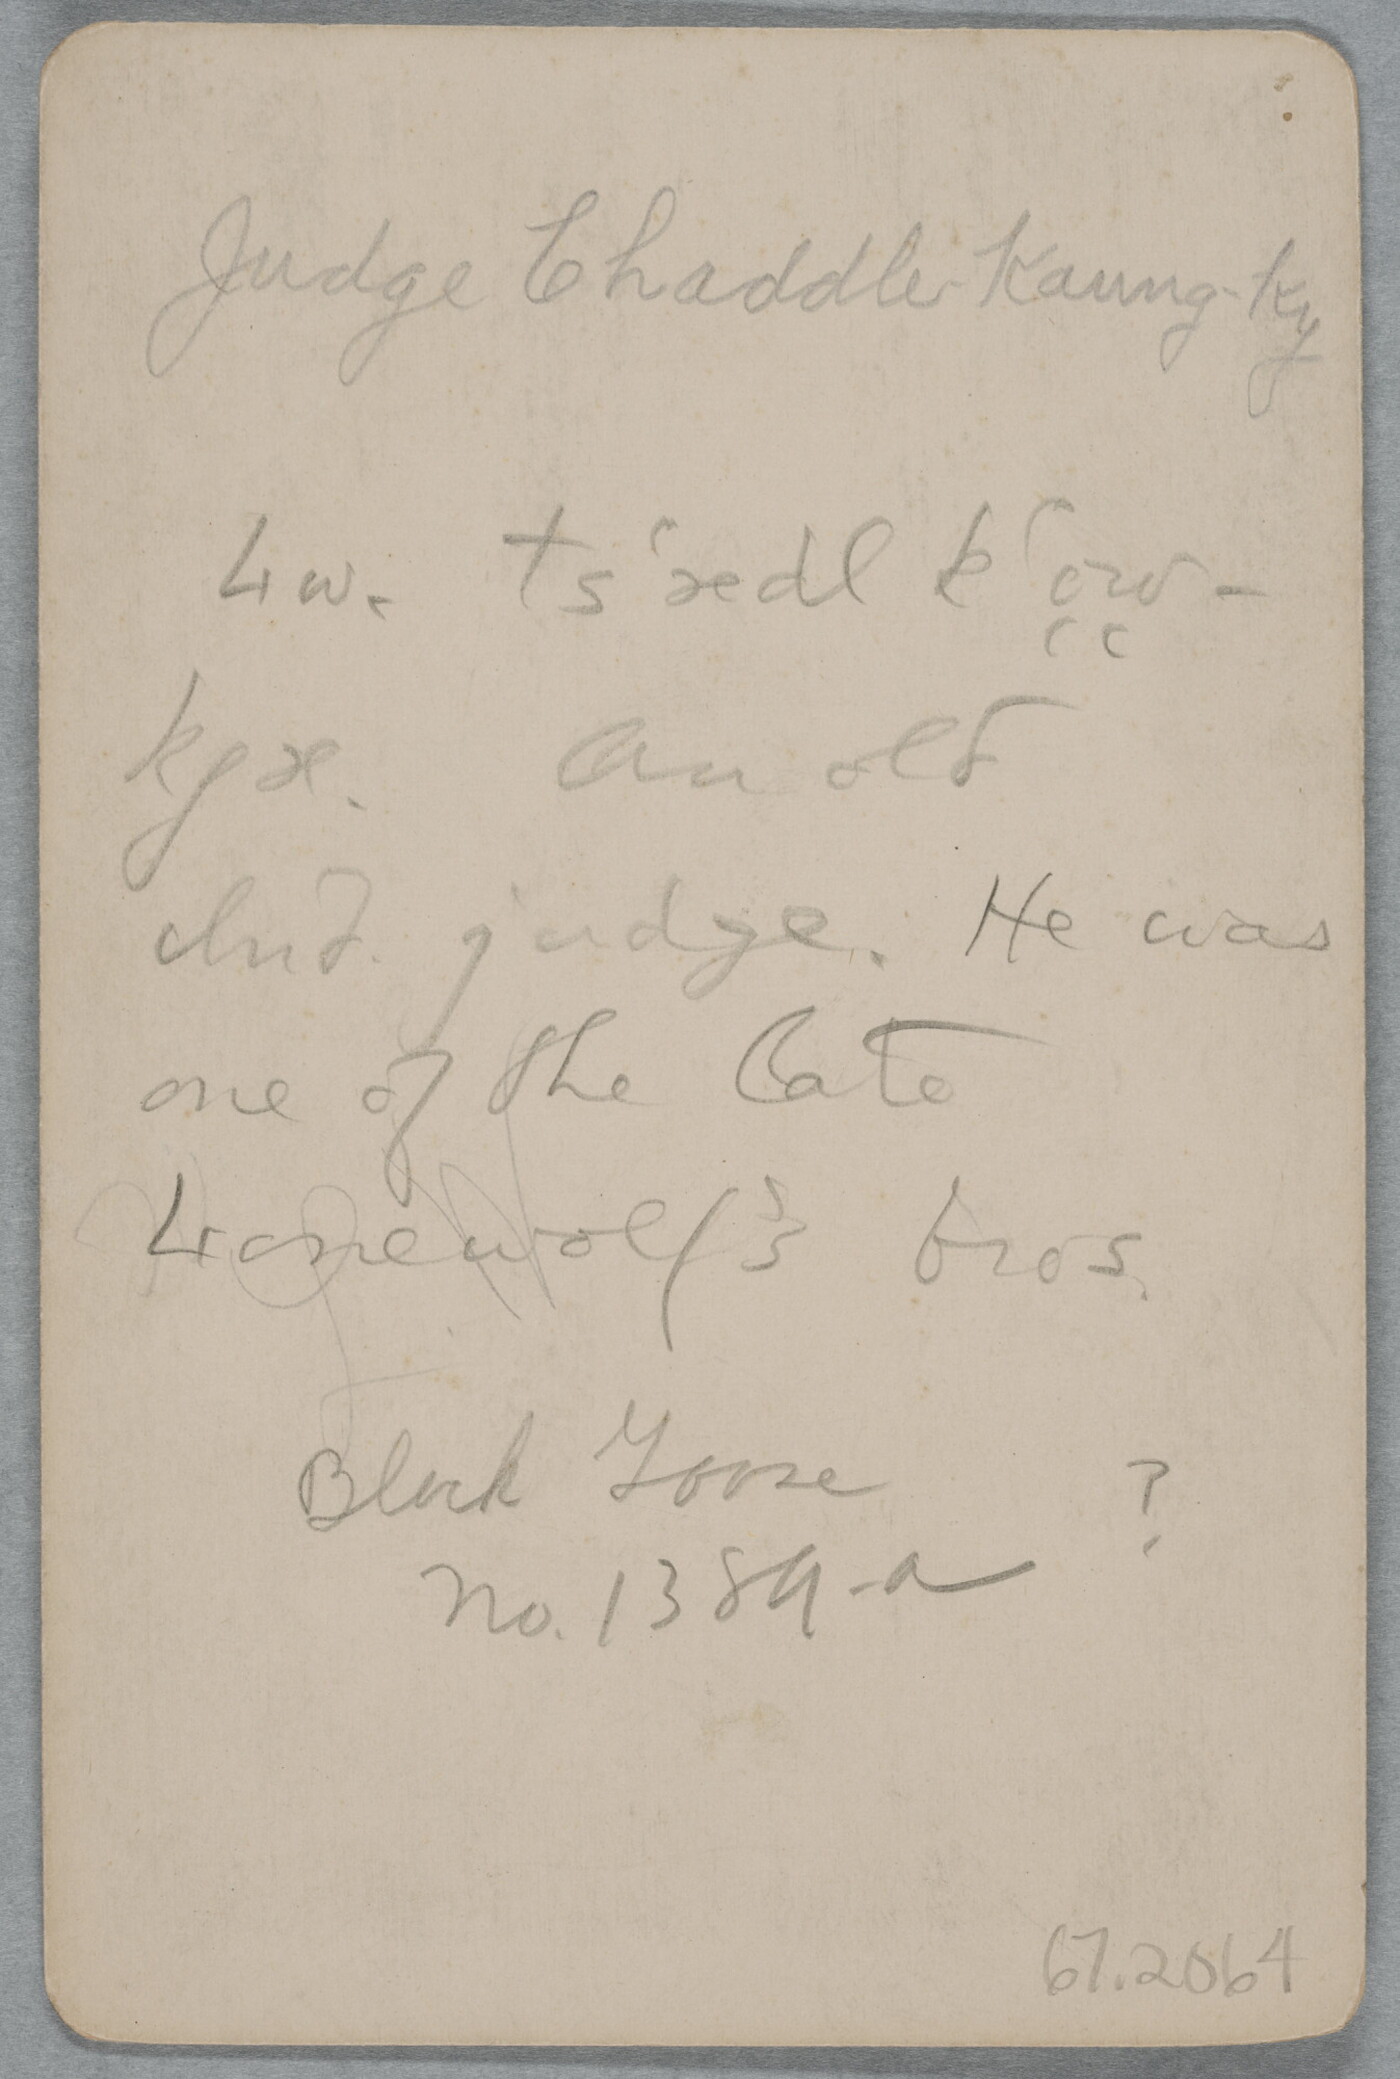 Judge Chaddle-Kaung-Ky
Lw. ts'ædl k'ow-
kyæ. An old
Ind. judge. He was
one of the late
Lonewolf's bros.
Black Goose ?
No. 1389-a
67.2064